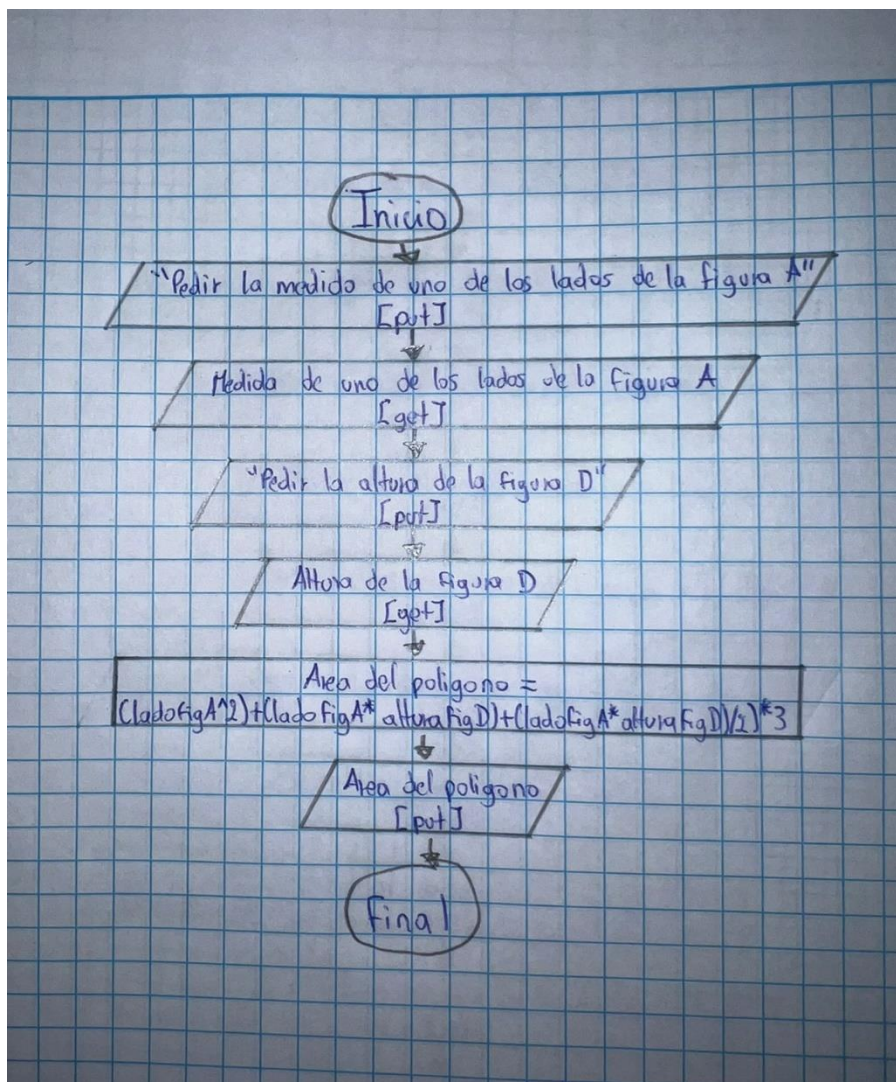 Inicio
"Pedir la medido de uno de los lados de la figura A"
[put]
Medida de uno de los lados de la figura A
[get]
"Pedir la altura de la figura D"
[put]
Altura de la figura D
[get]
Area del poligono =
(ladofigA^2)+(ladofigA* alturafigD)+(ladofigA*alturafigD)/2)*3
Area del poligono
[put]
Final